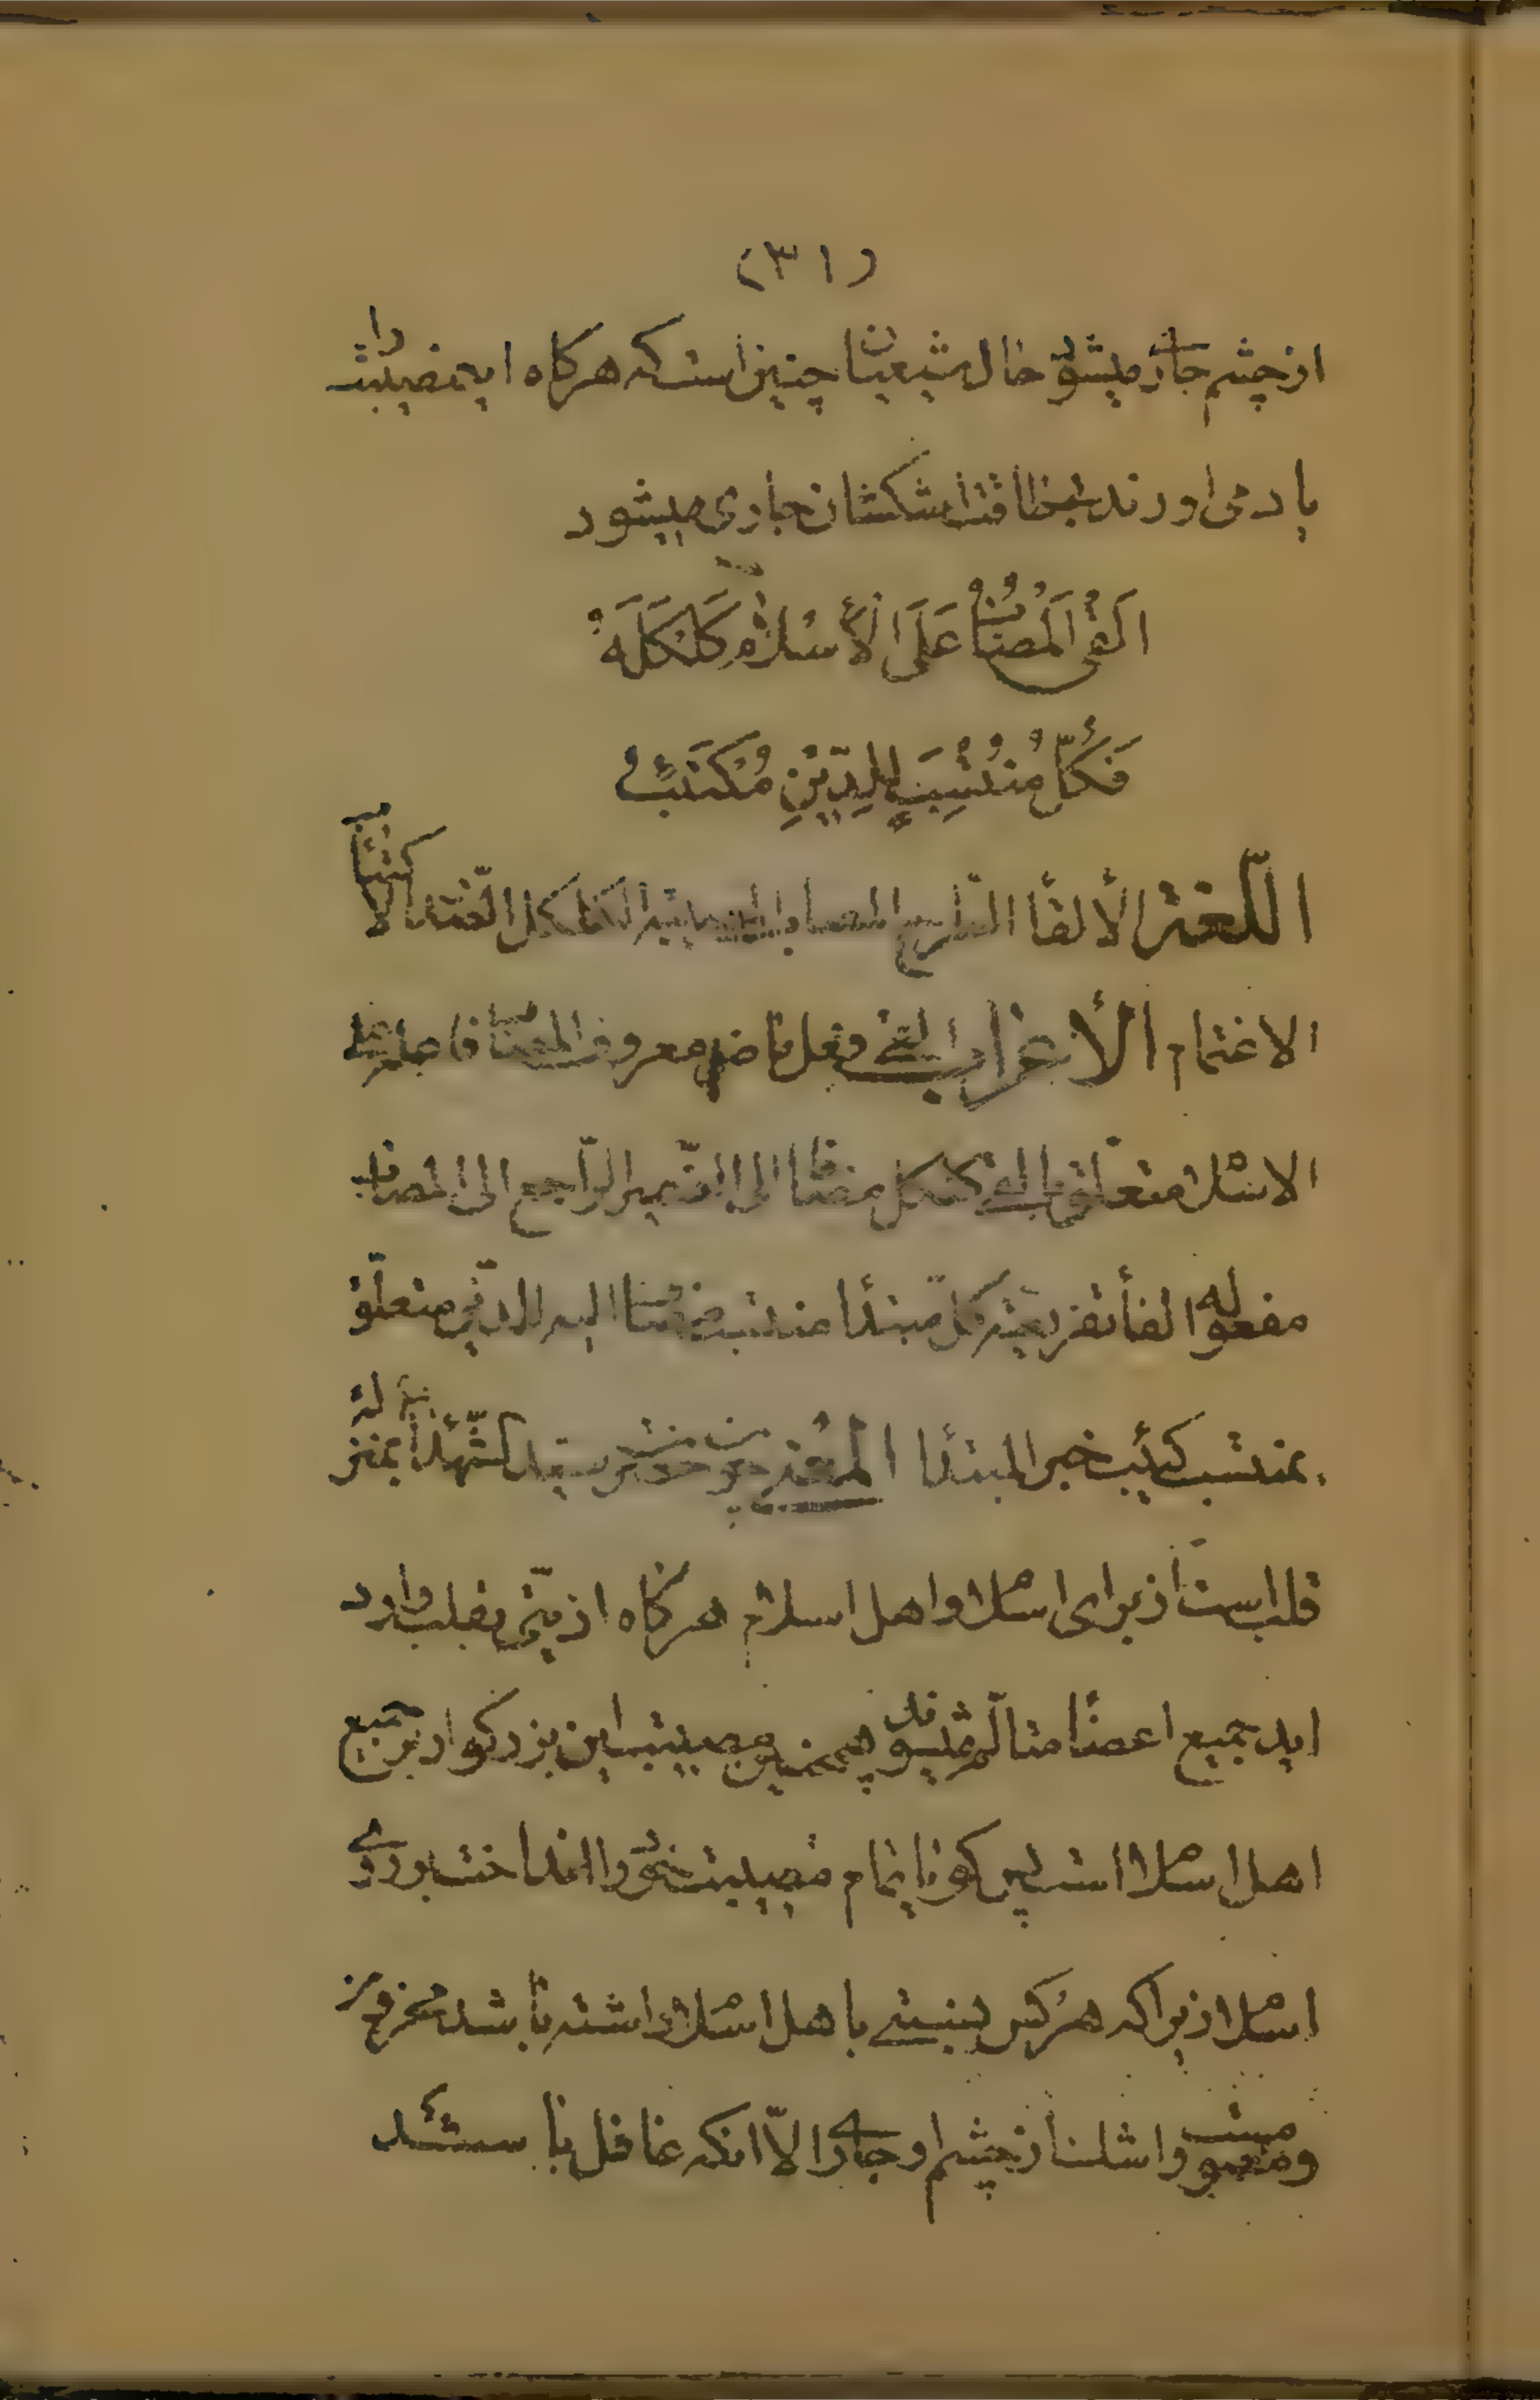 (۳۱)
از چشم جاری میشود حال شیعیان چنین است که هرگاه این مصیبت را
یاد می اورند بی طاقت اشکشان جاری میشود
اَلقَی المُصابُ عَلَی الأسلامِ کَلکَلَهُ
فَکُلُّ مُنتَسِبٍ لِلدّینِ مُکتَئِبُ
اللّغة الألقأ الطّرح المصاب المصیبة الکلکل الصّدر الاکتئاب
الاغتمام الأعراب القی فعل ماضی معروف المصاب فاعله علی
الاسلام متعلّق بالقی کلکل مضاف الی الضّمیر الرّاجع الی المصاب
مفعوله الفأ تفریعیّة کلّ مبتدأ منتسب مضاف الیه للدّین متعلّق
بمنتسب مکتئب خبر المبتدأ المعنی چون حضرت سیّد الشّهدأ بمنزلۀ
قلب است از برای اسلام و اهل اسلام هرگاه اذیّتی بقلب وارد
اید جمیع اعضا متالّم میشوند همچنین مصیبت این بزرگوار بر جمیع
اهل اسلام است پس گویا تمام مصیبت خود را انداخت بر روی
اسلام زیرا که هر کس نسبتی باهل اسلام داشته باشد محزون
و میشود واشک از چشم او جاری الاّ انکه غافل باشد